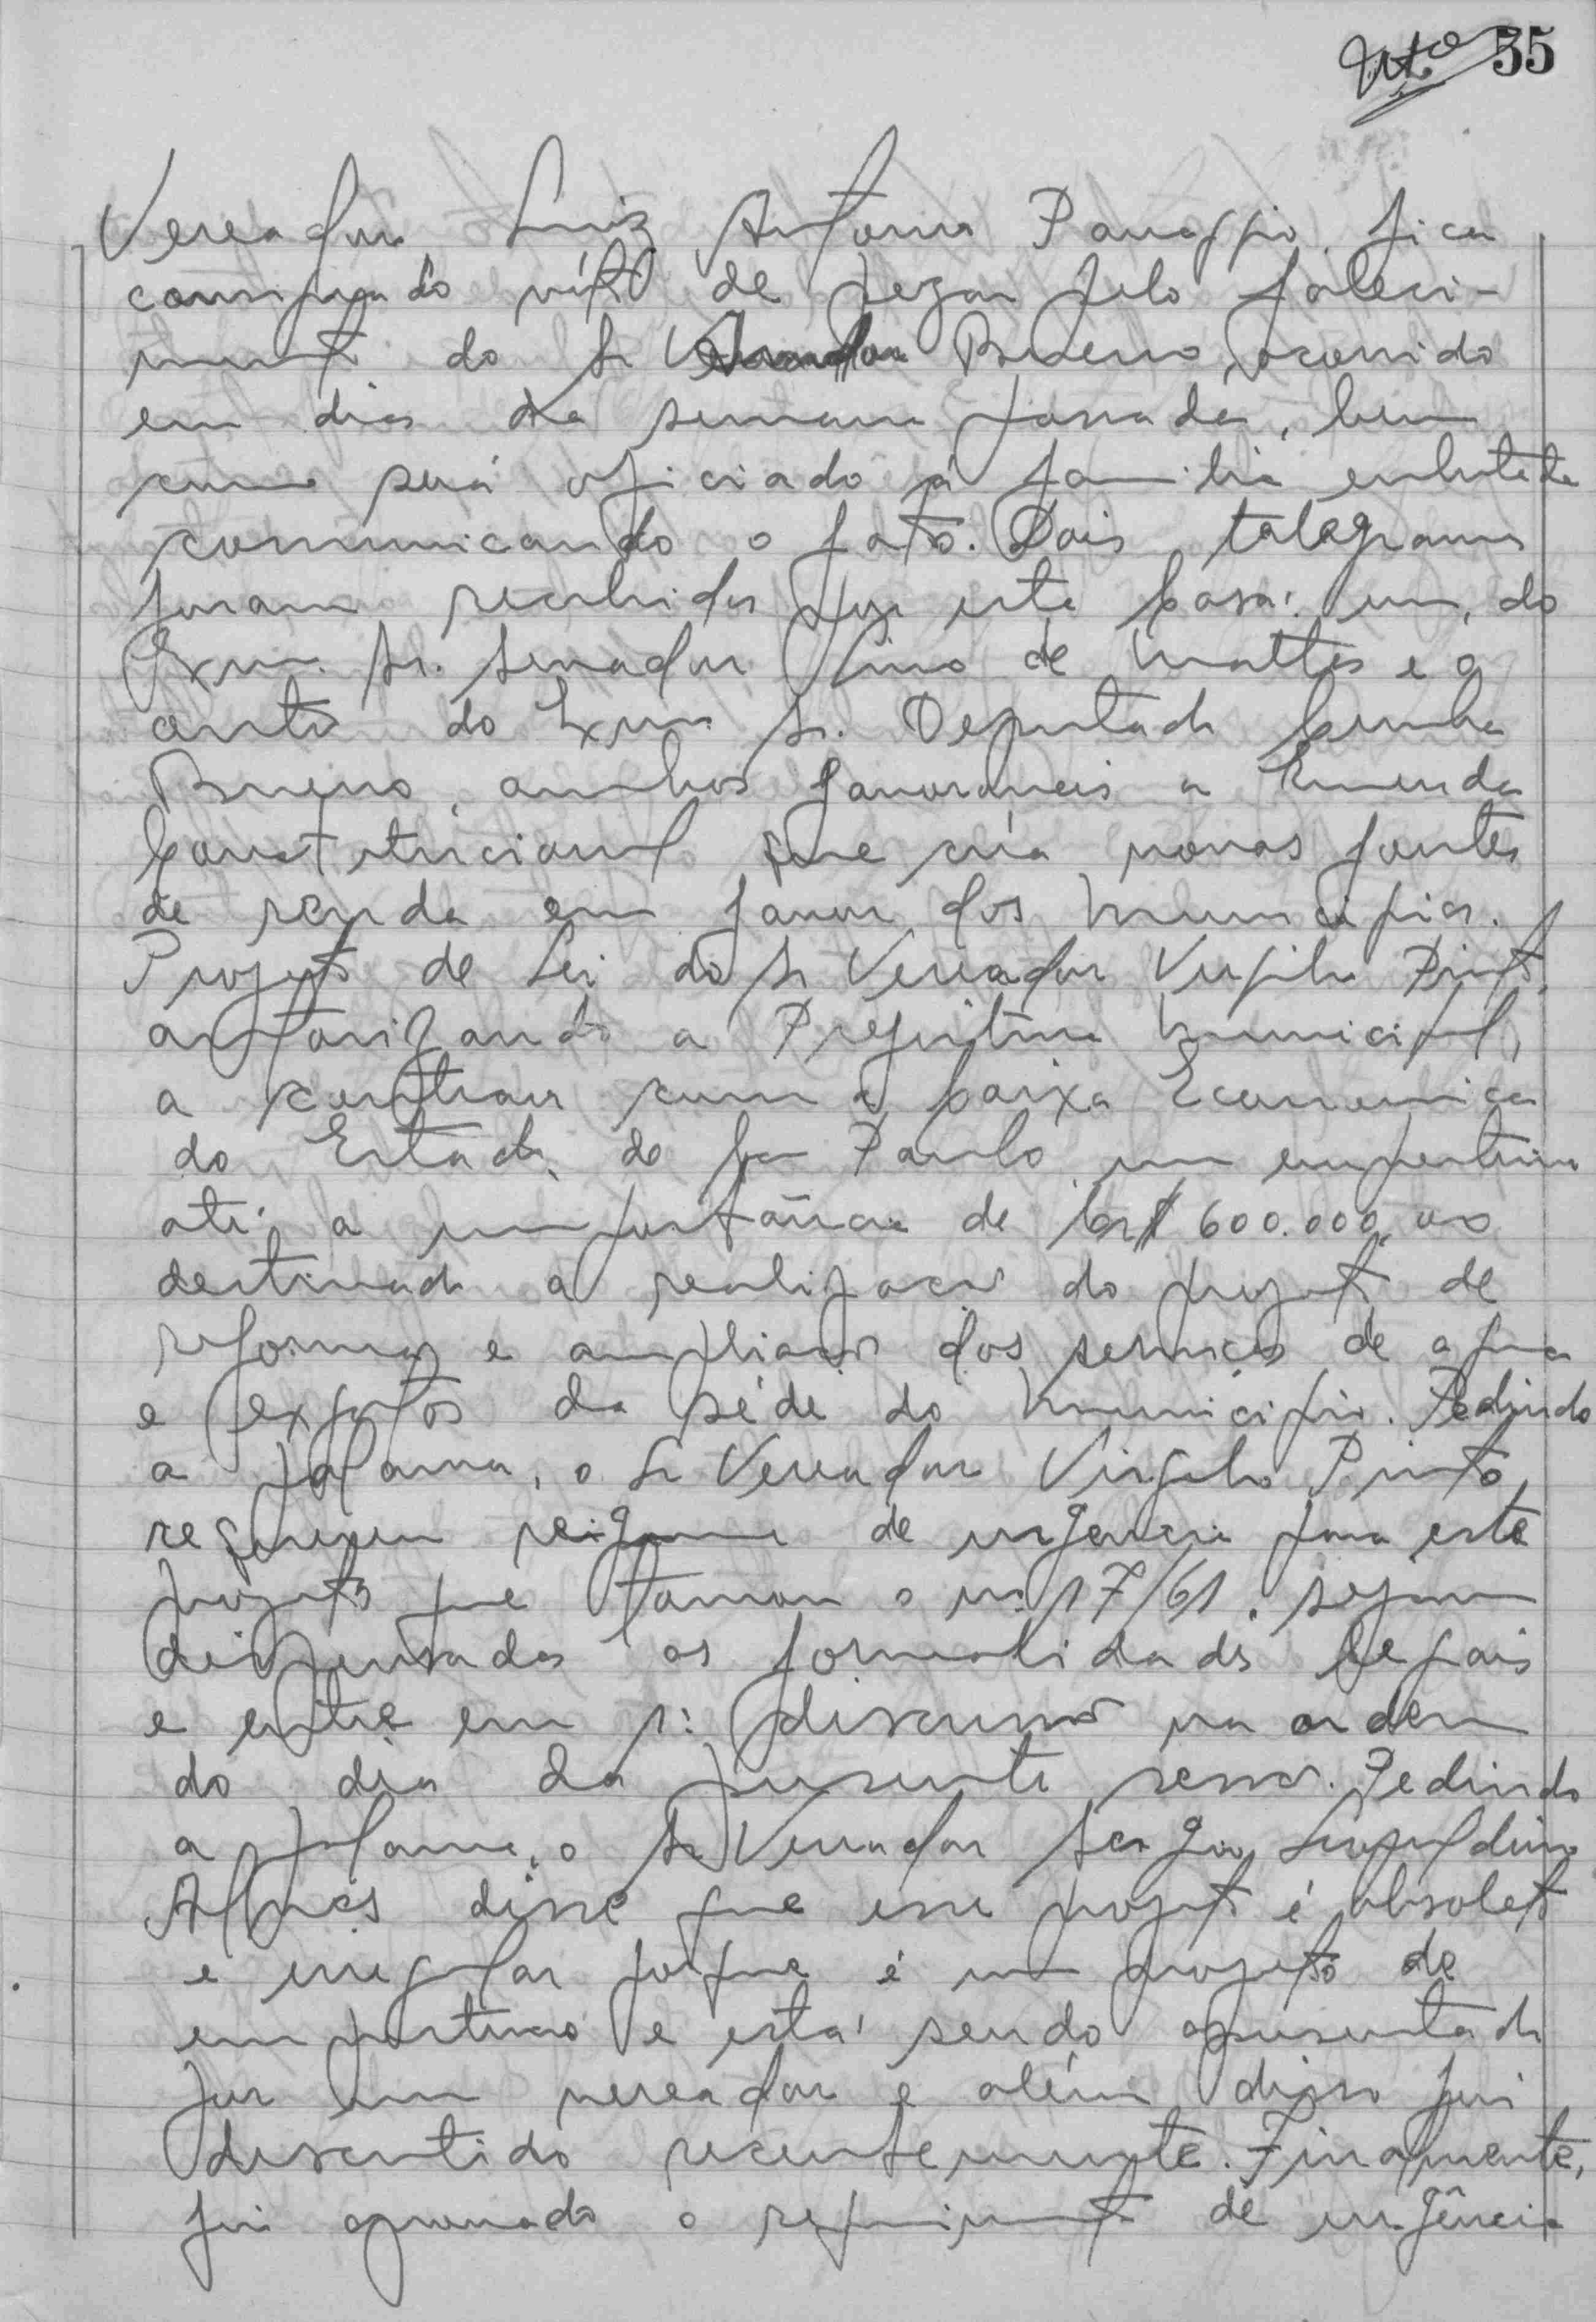 55
Vereador Luiz Antonio Panaggio, fica
consignado vóto de pezar pelo faleci-
mento do Sr Bueno, ocorrido
em dias da semana passada, bem
como será oficiado á familia enlutada
comunicando o fato. Dois telegramas
foram recebidos por esta Casa: um, do
Exmo. Sr. Senador Lino de Mattos e o
outro do Exmo Sr. Deputado Cunha
Bueno, ambos favoraveis a Emenda
Constitucional que cria novas fontes
de renda em favor dos Municipios.
Projeto de Lei do Sr Vereador Virgilio Pinto,
autorizando a Prefeitura Municipal,
a contrair com a Caixa Economica
do Estado de São Paulo um emprestimo
até a importância de Cr$ 600.000,00
destinado a realização do projeto de
reforma e ampliação dos serviços de agua
e exgotos da séde do Municipio. Pedindo
a palavra, o Sr Vereador Virgilio Pinto
requereu reigme de urgencia para este
projeto que tomou o nº 17/61, sejam
dispensadas as formalidades legais
e entre em 1ª discussão na ordem
do dia da presente sessão. Pedindo
a palavra, o Sr Vereador Sergio Leopoldino
Alves disse que esse projeto é obsoleto
e irregular porque é um projeto de
emprestimo e está sendo apresentado
por um vereador e além disso foi
discutido recentemente. Finamente,
foi aprovado o requerimento de urgência